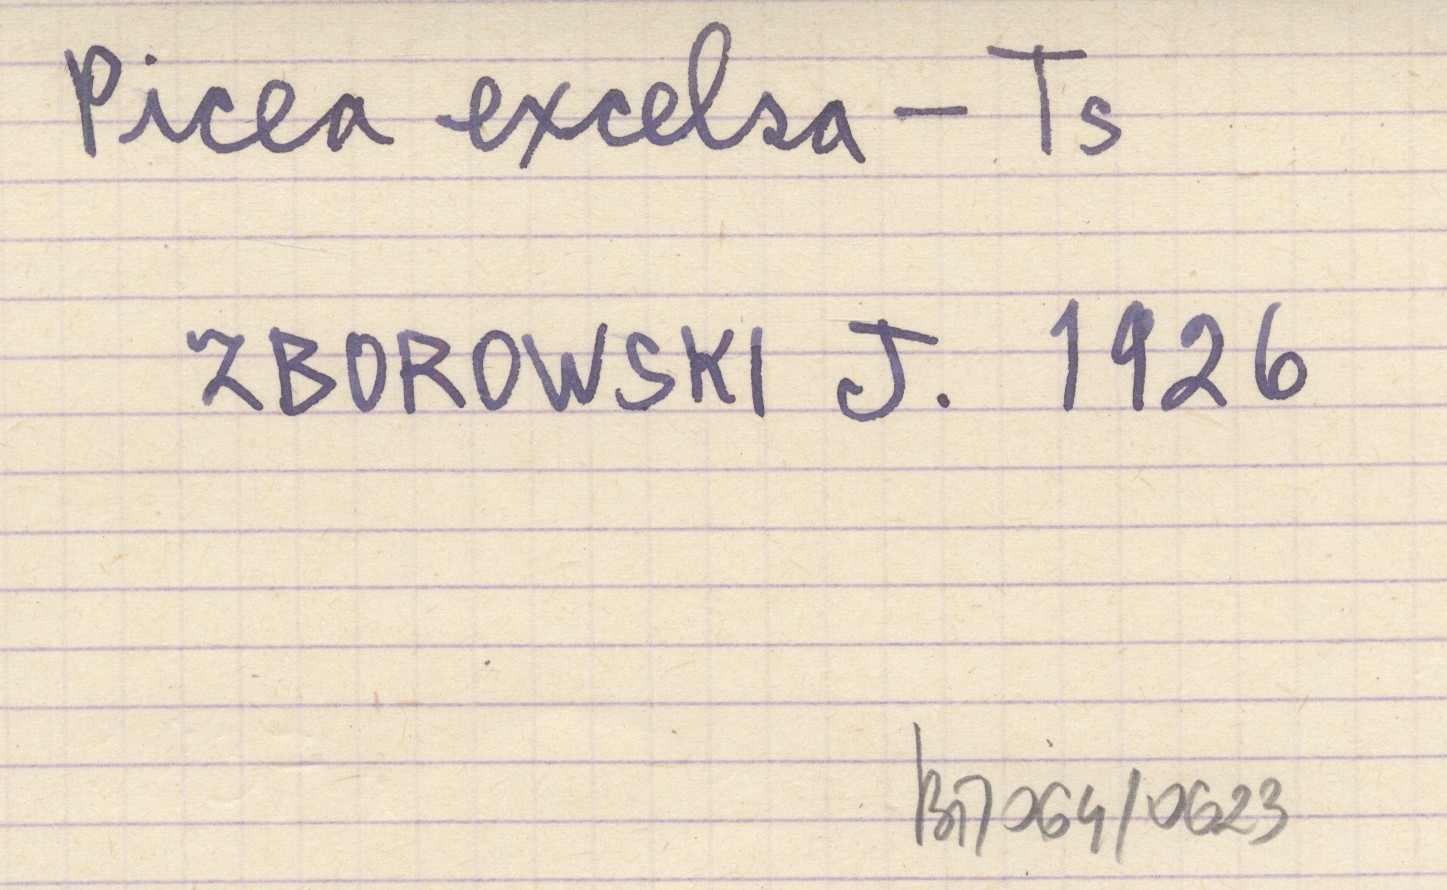 Picea excelsa - Ts
ZBOROWSKI J. 1926
064/0623